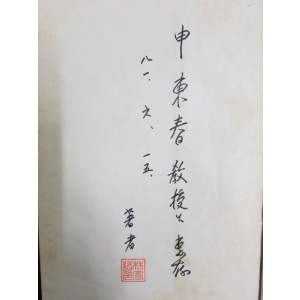 申東春教授 惠存
八一、六、一五、
著者